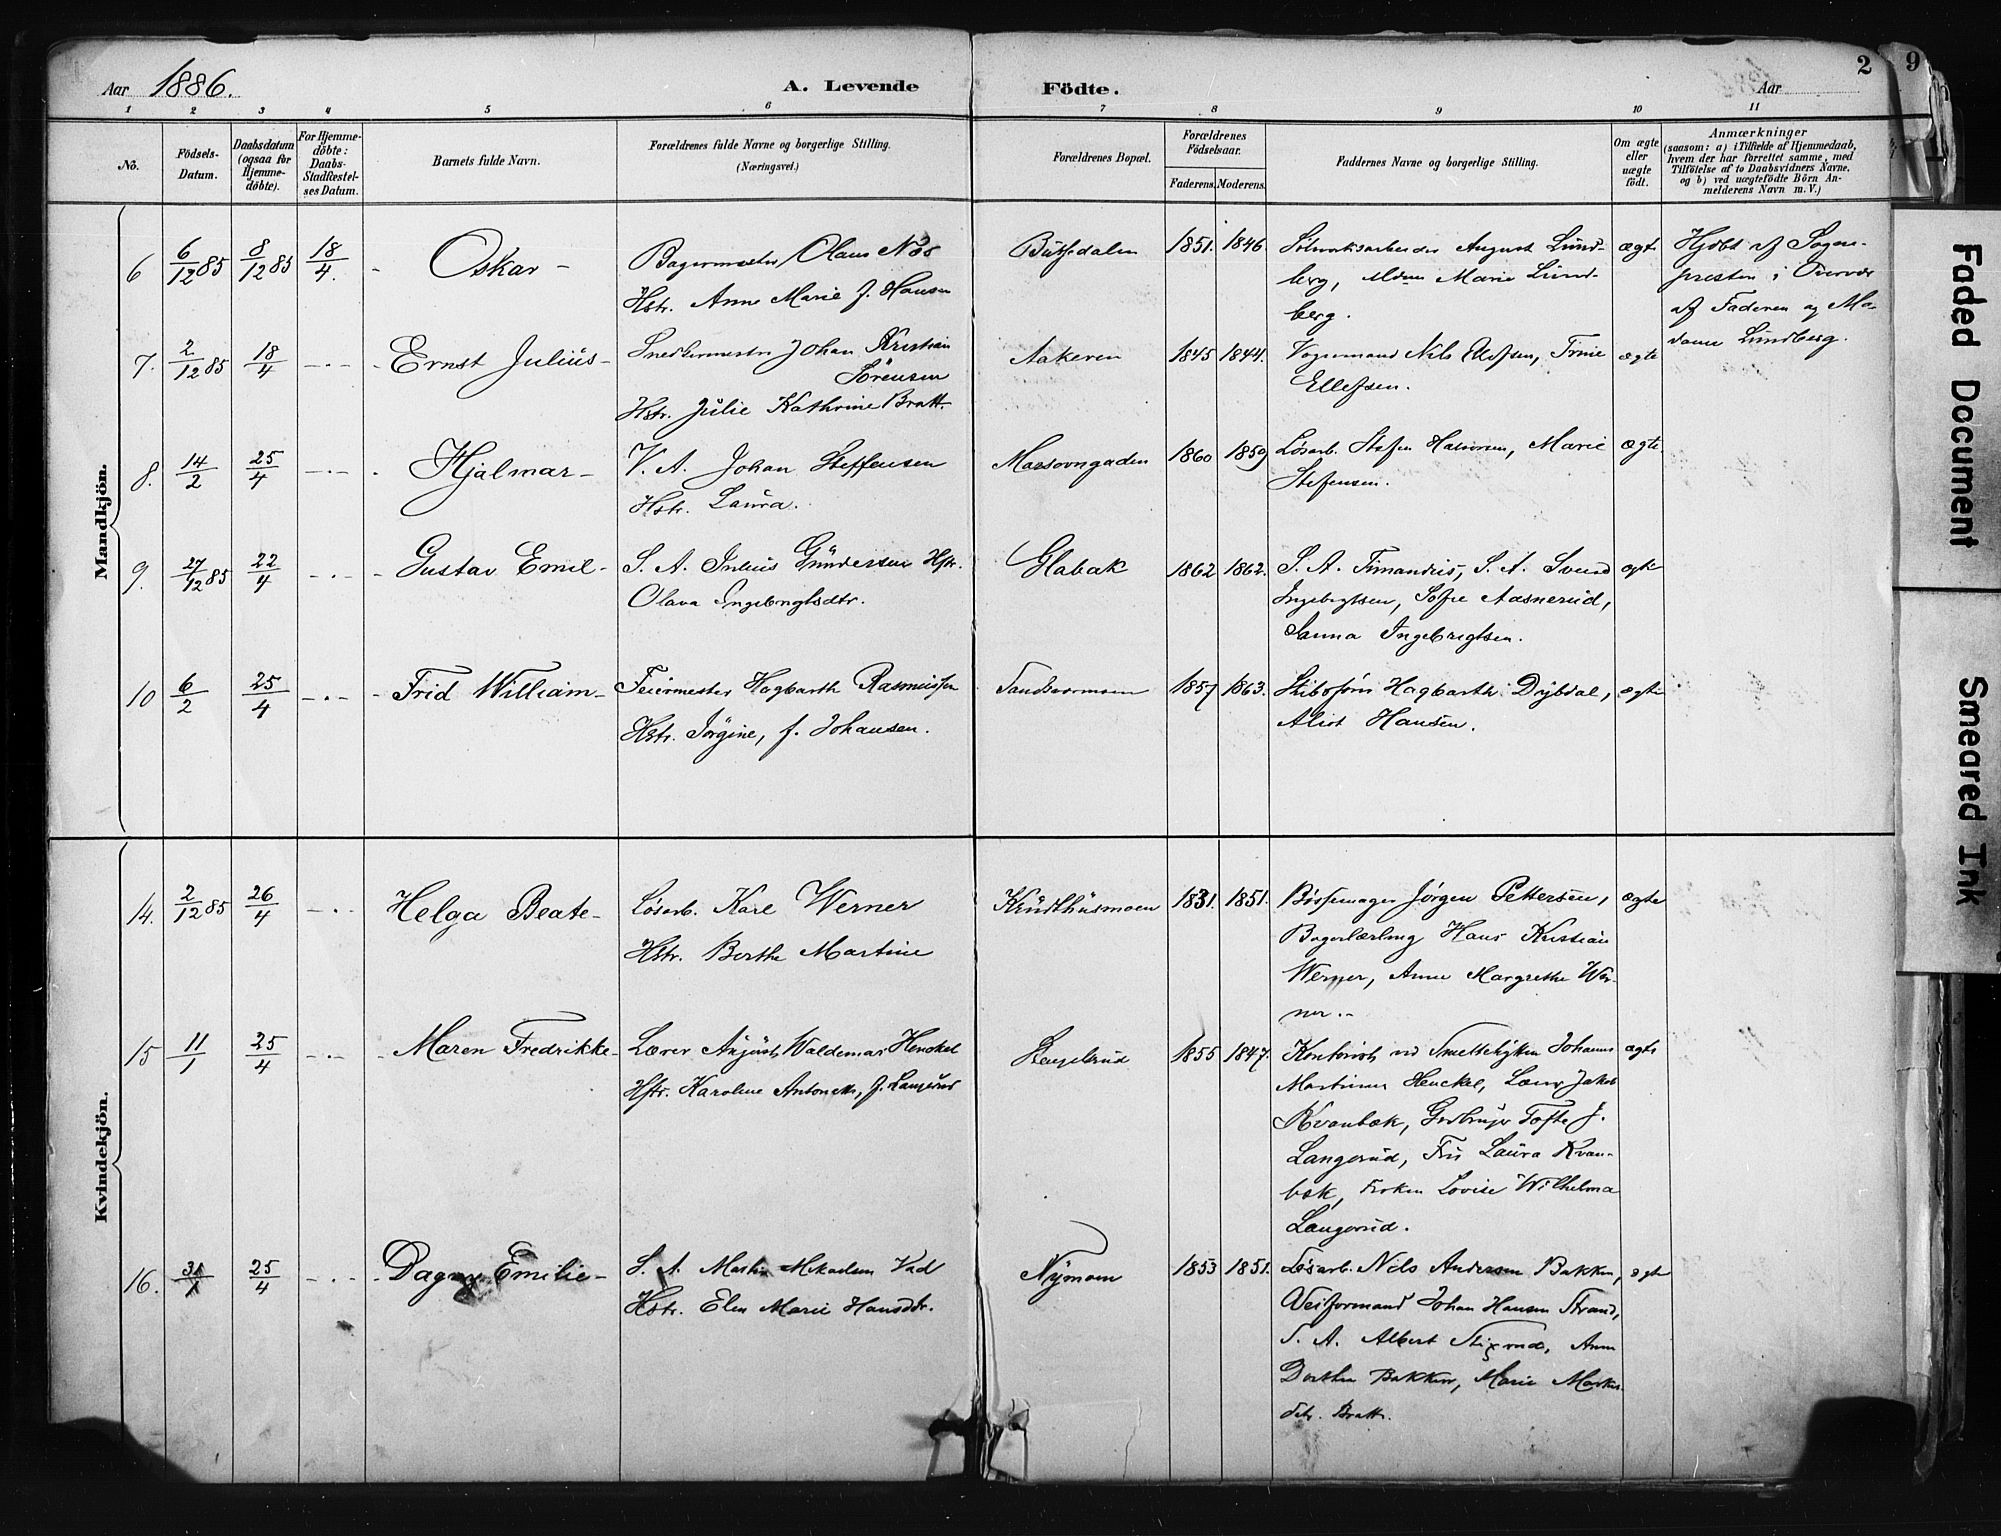 Aar 1886. A. Levende Födte. Aar 2 9
1 2 3 4 5 6 7 8 9 10 11
No. Födsels-Datum. Daabsdatum (ogsaa for Hjemme-döbte). For Hjemme-döbte: Daabs-Stadfæstel-ses Datum. Barnets fulde Navn. Forældrenes fulde Navne og borgerlige Stilling. (Næringsvei.) Forældrenes Bopæl. Forældrenes Födselsaar. Faderens. Moderens. Faddernes Navne og borgerlige Stilling. Om ægte eller uægte födt. Anmærkninger (saasom: a) i Tilfælde af Hjemmedaab, hvem der har forrettet samme, med Tilföielse af to Daabsvidners Navne, og b) ved uægtefödte Börn An-melderens Navn m. V.)
Mandkjön.
6 6/12 85 8/12 85 18/4. - Oskar - Bagermester Olaus Næs 1851. 1846 August Lund- ægte Hjdbt af Sogne-
Hstr. Anne Marie f. Hansen berg, Marie Lund- presten i Overvær
berg. af Faderen og Ma-
dame Lundberg.
7. 2/12 85 18/4 - Ernst Julius - Snedkermester Johan Kristian Aakeren 1845 1844. Vognmand Nils Ellefsen, Trine ægte
Sörensen Ellefsen.
Hstr. Julie Kathrine Bratt.
8. 14/2 25/4 - Hjalmar - V. A. Johan Steffensen Masovngaden 1860 1859 Løsarb. Marie ægte
Hstr. Laura. Stefensen.
9. 27/12 85 22/4 - Gustav Emil - S. A. Julius Gundersen Hstr. Glabak 1862 1862. S. A. S. A. Svend ægte
Olava Ingebrigtsdtr. Ingebrigtsen, Sofie Aasnerud,
Ingebrigtsen.
10 6/2 25/4 - Frid William - Feiermester Hagbarth Rasmussen Sandsværmoen 1857 1863. Hagbarth Dybdal, ægte
Hstr. Jörgine, f. Johansen. Hansen.
Kvindekjön.
14. 2/12 85 26/4 - Helga Beate - Løsarb. Karl Werner Krudthusmoen 1831. 1851. Bøssemager Jörgen Pettersen, ægte
Hstr. Berthe Martine Bagerlærling Hans Kristian
Werner, Anne Margrethe Wer-
ner. -
15 11/1 25/4 - Maren Fredrikke - Lærer August Waldemar Henckel 1855 1847. Kontorist ved Smeltehytten Johannes ægte
Hstr. Karoline Antonette, f. Langerud Martinus Henckel, Lærer Jakob
Kvanbæk, Tofte J.
Langerud, Fru Laura Kvan-
bæk, Frøken Lovise Wilhelma
Langerud.
16. 31/1 25/4 - Dagny Emilie - S. A. Martin Mikaelsen Vad Nymoen 1853 1851. Løsarb. Nils Andersen Bakken, ægte
Hstr. Elen Marie Hansdtr. Veiformand Johan Hansen Strand,
S. A. Albert Anne
Dorthea Bakken, Marie
dtr. Bratt.
Faded Document
Smeared Ink